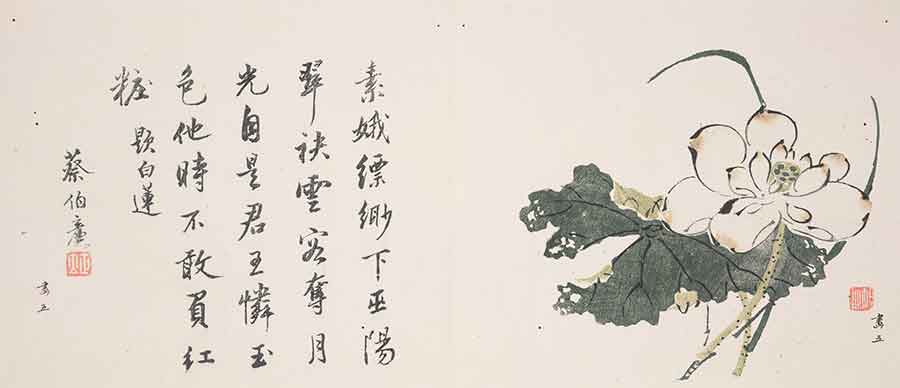 畫五
素娥縹緲下巫陽
翠袂雲容奪月
光自是君王憐玉
色他時不敢買紅
粧 題白蓮
蔡伯
畫五